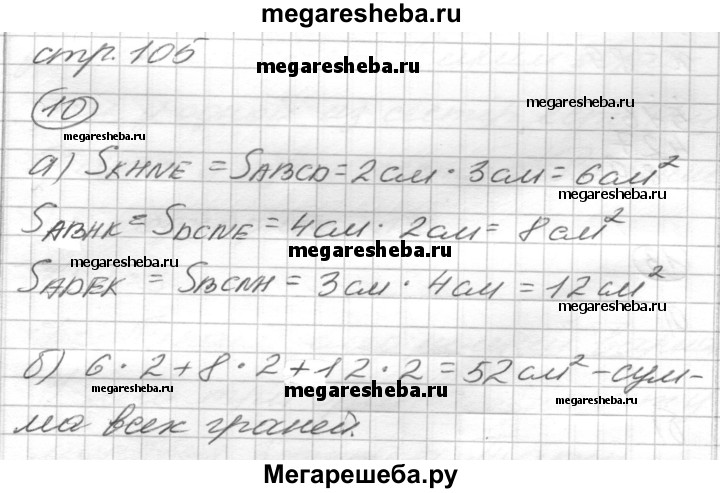 megaresheba.ru
стр. 105
megaresheba.ru
10
megaresheba.ru
megaresheba.ru
а) SKHNE = SABCD = 2 см · 3 см = 6 см²
megaresheba.ru
SABHK = SDCNE = 4 см · 2 см = 8 см²
megaresheba.ru
megaresheba.ru
SADEK = SBCNH = 3 см · 4 см = 12 см²
megaresheba.ru
б) 6 · 2 + 8 · 2 + 12 · 2 = 52 см² – сум-
megaresheba.ru
megaresheba.ru
megaresheba.ru
ма всех граней.
Мегарешеба.ру